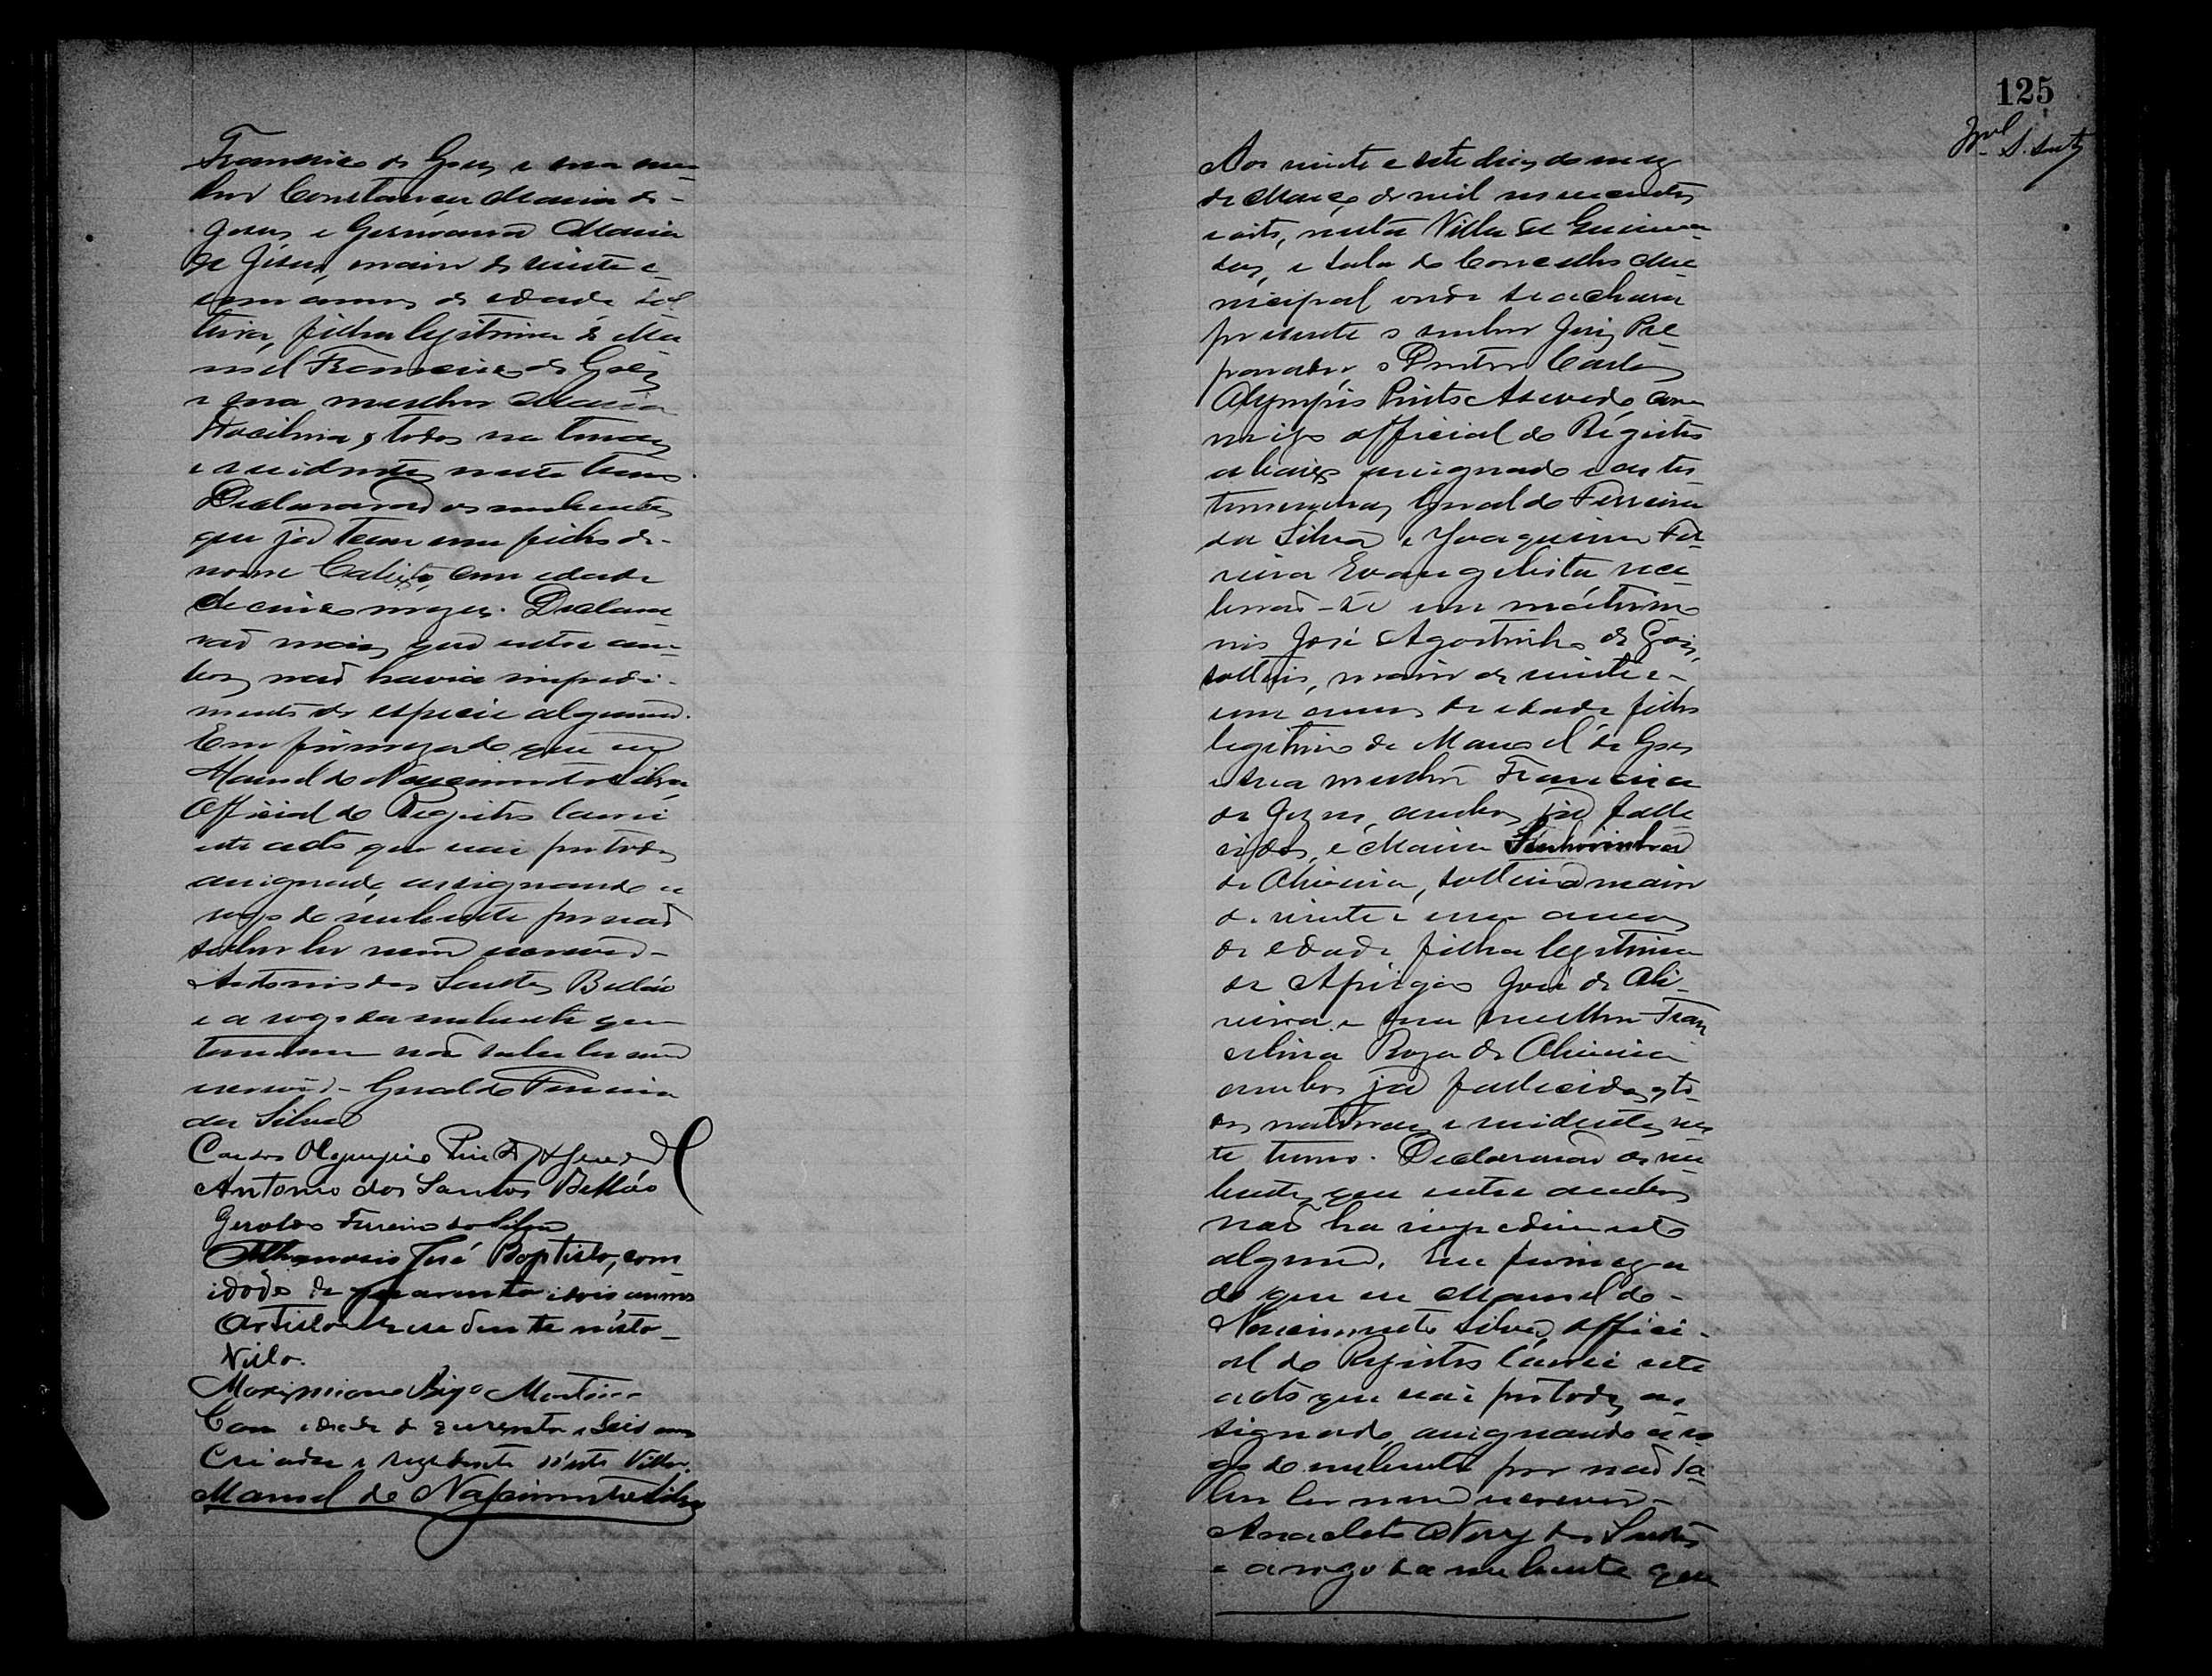 Francisco de Goes e sua mu-
lher Constancia Maria de -
Jesus e Germana Maria
de Jesus, maior de vinte e
um annos de edade sol
teira, filha legitima de Ma
noel Francisco de Goes
e sua mulher Maria
todos naturaes
e residentes neste termo.
Declararão os nubentes
que já tem um filho de -
nome Calixto, com edade
de cinco mezes. Declara
rão mais que entre am-
bos não havia impedi-
mento de especie alguma.
Em firmeza do que eu
Manoel do Nascimento Silva
Official do Registro lavrei
este acto que vai por todos
assignado assignando a
rogo do nubente por não
saber ler nem escrever -
Antonio dos Santos Bellão
e a rogo da nubente que
tambem não sabe ler nem
escrever - Geraldo Ferreira
da Silva
Carlos Olympio Pinto Azevedo
Antonio dos Santos Bellão
Geraldo Ferreira da Silva
Athanasio José Baptista, com
idade de quarenta e dois annos
Artista residente nésta
Villa.
Maximiano Monteiro
Com idade de quarenta e seis annos
Criador e rezidente nésta Villa.
Manoel do Nascimento Silva
125
Aos vinte e sete dias do mez
de Março de mil novecentos
e oito, nesta Villa de
e sala do Concelho Mu-
nicipal onde se achava
presente o senhor Juiz Pre-
parador, o Doutor Carlos
Olympio Pinto Azevedo com-
migo official do Registro
abaixo assignado e as tes
temunhas Geraldo Ferreira
da Silva e Joaquim Fer-
reira Evangelista rece-
berão-se em matrimo
nio José Agostinho de Goes,
solteiro, maior de vinte e -
um annos de edade filho
legitimo de Manoel de Goes
e sua mulher Francisca
de Jesus, ambos já falle
cidos, e Maria Senhorinha
de Oliveira, solteira maior
de vinte e um annos
de edade filha legitima
de Aprigio José de Oli-
veira e sua mulher Fran
celina Roza de Oliveira
ambos já fallecidos, to-
dos naturaes e residentes nes
te termo. Declararão os nu-
bentes que entre ambos
não ha impedimento
algum. Em firmeza
do que eu Manoel do -
Nascimento Silva, Offici-
al do Registro lavrei este
acto que vai por todos as-
signado, assignando a ro-
go do nubente por não sa-
ber ler nem escrever -
Anacleto Nery dos Santos
e a rogo da nubente que